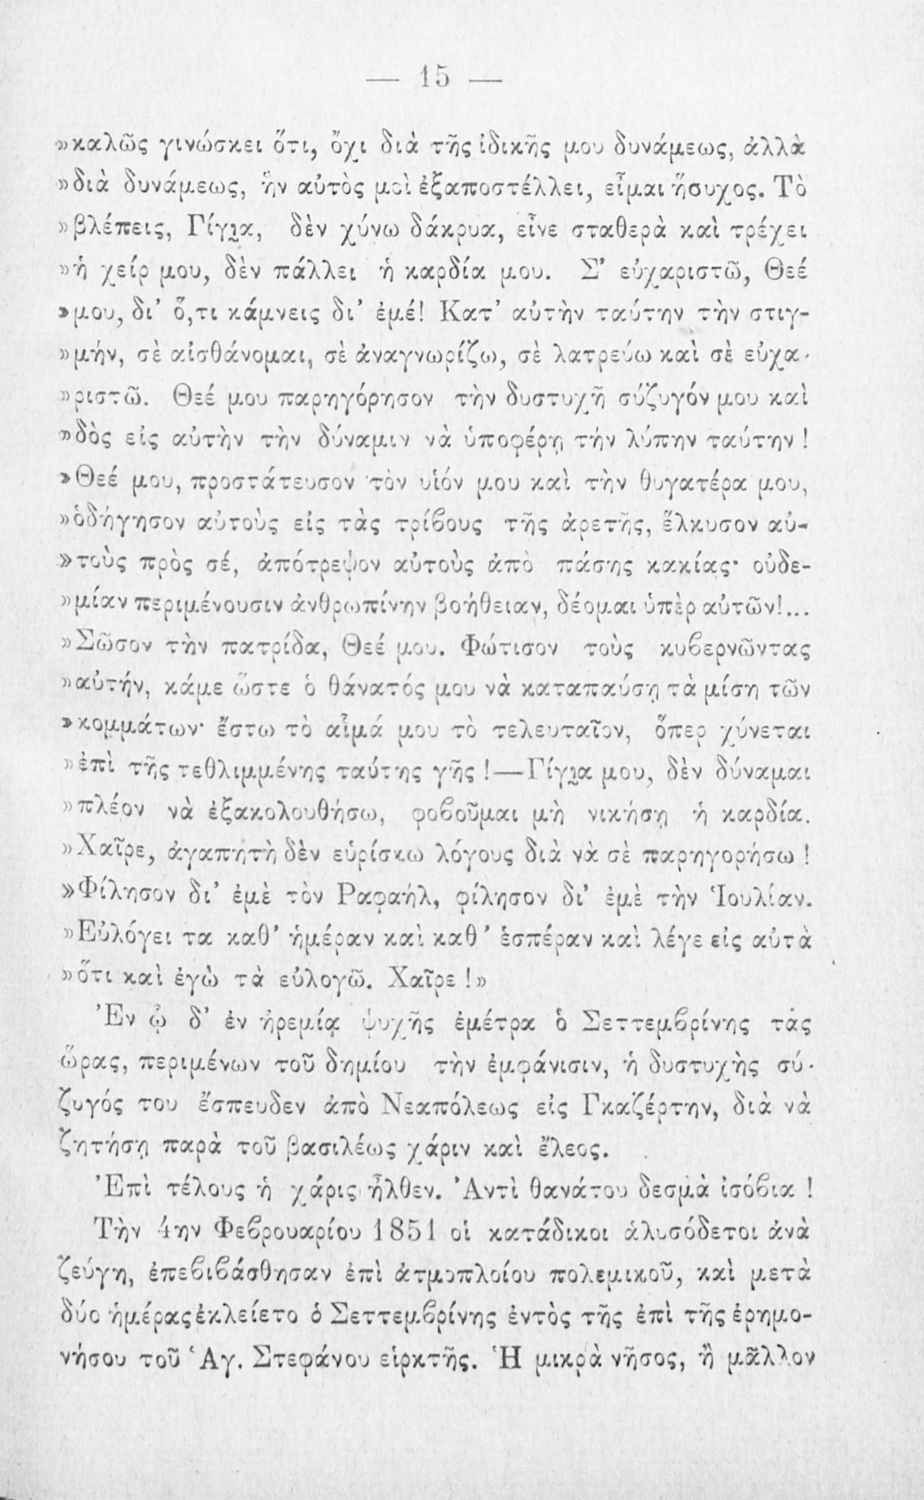 — 15 —
»καλῶς γινώσκει ὅτι, ὄχι διὰ τῆς ἰδικῆς μου δυνάμεως, ἀλλὰ
»διὰ δυνάμεως, ἣν αὐτὸς μοὶ ἐξαποστέλλει, εἶμαι ἥσυχος. Τὸ
»βλέπεις, Γίγια, δὲν χύνω δάκρυα, εἶνε σταθερὰ καὶ τρέχει
»ἡ χείρ μου, δὲν πάλλει ἡ καρδία μου. Σ’ εὐχαριστῶ, Θεέ
»μου, δι’ ὅ,τι κάμνεις δι’ ἐμέ! Κατ’ αὐτὴν ταύτην τὴν στιγ-
»μήν, σὲ αἰσθάνομαι, σὲ ἀναγνωρίζω, σὲ λατρεύω καὶ σὲ εὐχα-
»ριστῶ. Θεέ μου παρηγόρησον τὴν δυστυχῆ σύζυγόν μου καὶ
»δὸς εἰς αὐτὴν τὴν δύναμιν νὰ ὑποφέρῃ τὴν λύπην ταύτην !
»Θεέ μου, προστάτευσον τὸν υἱόν μου καὶ τὴν θυγατέρα μου,
»ὁδήγησον αὐτοὺς εἰς τὰς τρίβους τῆς ἀρετῆς, ἕλκυσον αὐ-
»τοὺς πρὸς σέ, ἀπότρεψον αὐτοὺς ἀπὸ πάσης κακίας· οὐδε-
»μίαν περιμένουσιν ἀνθρωπίνην βοήθειαν, δέομαι ὑπὲρ αὐτῶν!...
»Σῶσον τὴν πατρίδα, Θεέ μου. Φώτισον τοὺς κυβερνῶντας
»αὐτήν, κάμε ὥστε ὁ θάνατός μου νὰ καταπαύσῃ τὰ μίση τῶν
»κομμάτων· ἔστω τὸ αἷμά μου τὸ τελευταῖον, ὅπερ χύνεται
»ἐπὶ τῆς τεθλιμμένης ταύτης γῆς !—Γίγια μου, δὲν δύναμαι
»πλέον νὰ ἐξακολουθήσω, φοβοῦμαι μὴ νικήσῃ ἡ καρδία.
»Χαῖρε, ἀγαπητὴ δὲν εὑρίσκω λόγους διὰ νὰ σὲ παρηγορήσω !
»Φίλησον δι’ ἐμὲ τὸν Ραφαήλ, φίλησον δι’ ἐμὲ τὴν Ἰουλίαν.
»Εὐλόγει τα καθ’ ἡμέραν καὶ καθ’ ἑσπέραν καὶ λέγε εἰς αὐτὰ
»ὅτι καὶ ἐγὼ τὰ εὐλογῶ. Χαῖρε !»
Ἐν ᾧ δ’ ἐν ἠρεμίᾳ ψυχῆς ἐμέτρα ὁ Σεττεμβρίνης τὰς
ὥρας, περιμένων τοῦ δημίου τὴν ἐμφάνισιν, ἡ δυστυχὴς σύ-
ζυγός του ἔσπευδεν ἀπὸ Νεαπόλεως εἰς Γκαζέρτην, διὰ νὰ
ζητήσῃ παρὰ τοῦ βασιλέως χάριν καὶ ἔλεος.
Ἐπὶ τέλους ἡ χάρις ἦλθεν. Ἀντὶ θανάτου δεσμὰ ἰσόβια !
Τὴν 4ην Φεβρουαρίου 1851 οἱ κατάδικοι ἁλυσόδετοι ἀνὰ
ζεύγη, ἐπεβιβάσθησαν ἐπὶ ἀτμοπλοίου πολεμικοῦ, καὶ μετὰ
δύο ἡμέρας ἐκλείετο ὁ Σεττεμβρίνης ἐντὸς τῆς ἐπὶ τῆς ἐρημο-
νήσου τοῦ Ἁγ. Στεφάνου εἱρκτῆς. Ἡ μικρὰ νῆσος, ἢ μᾶλλον